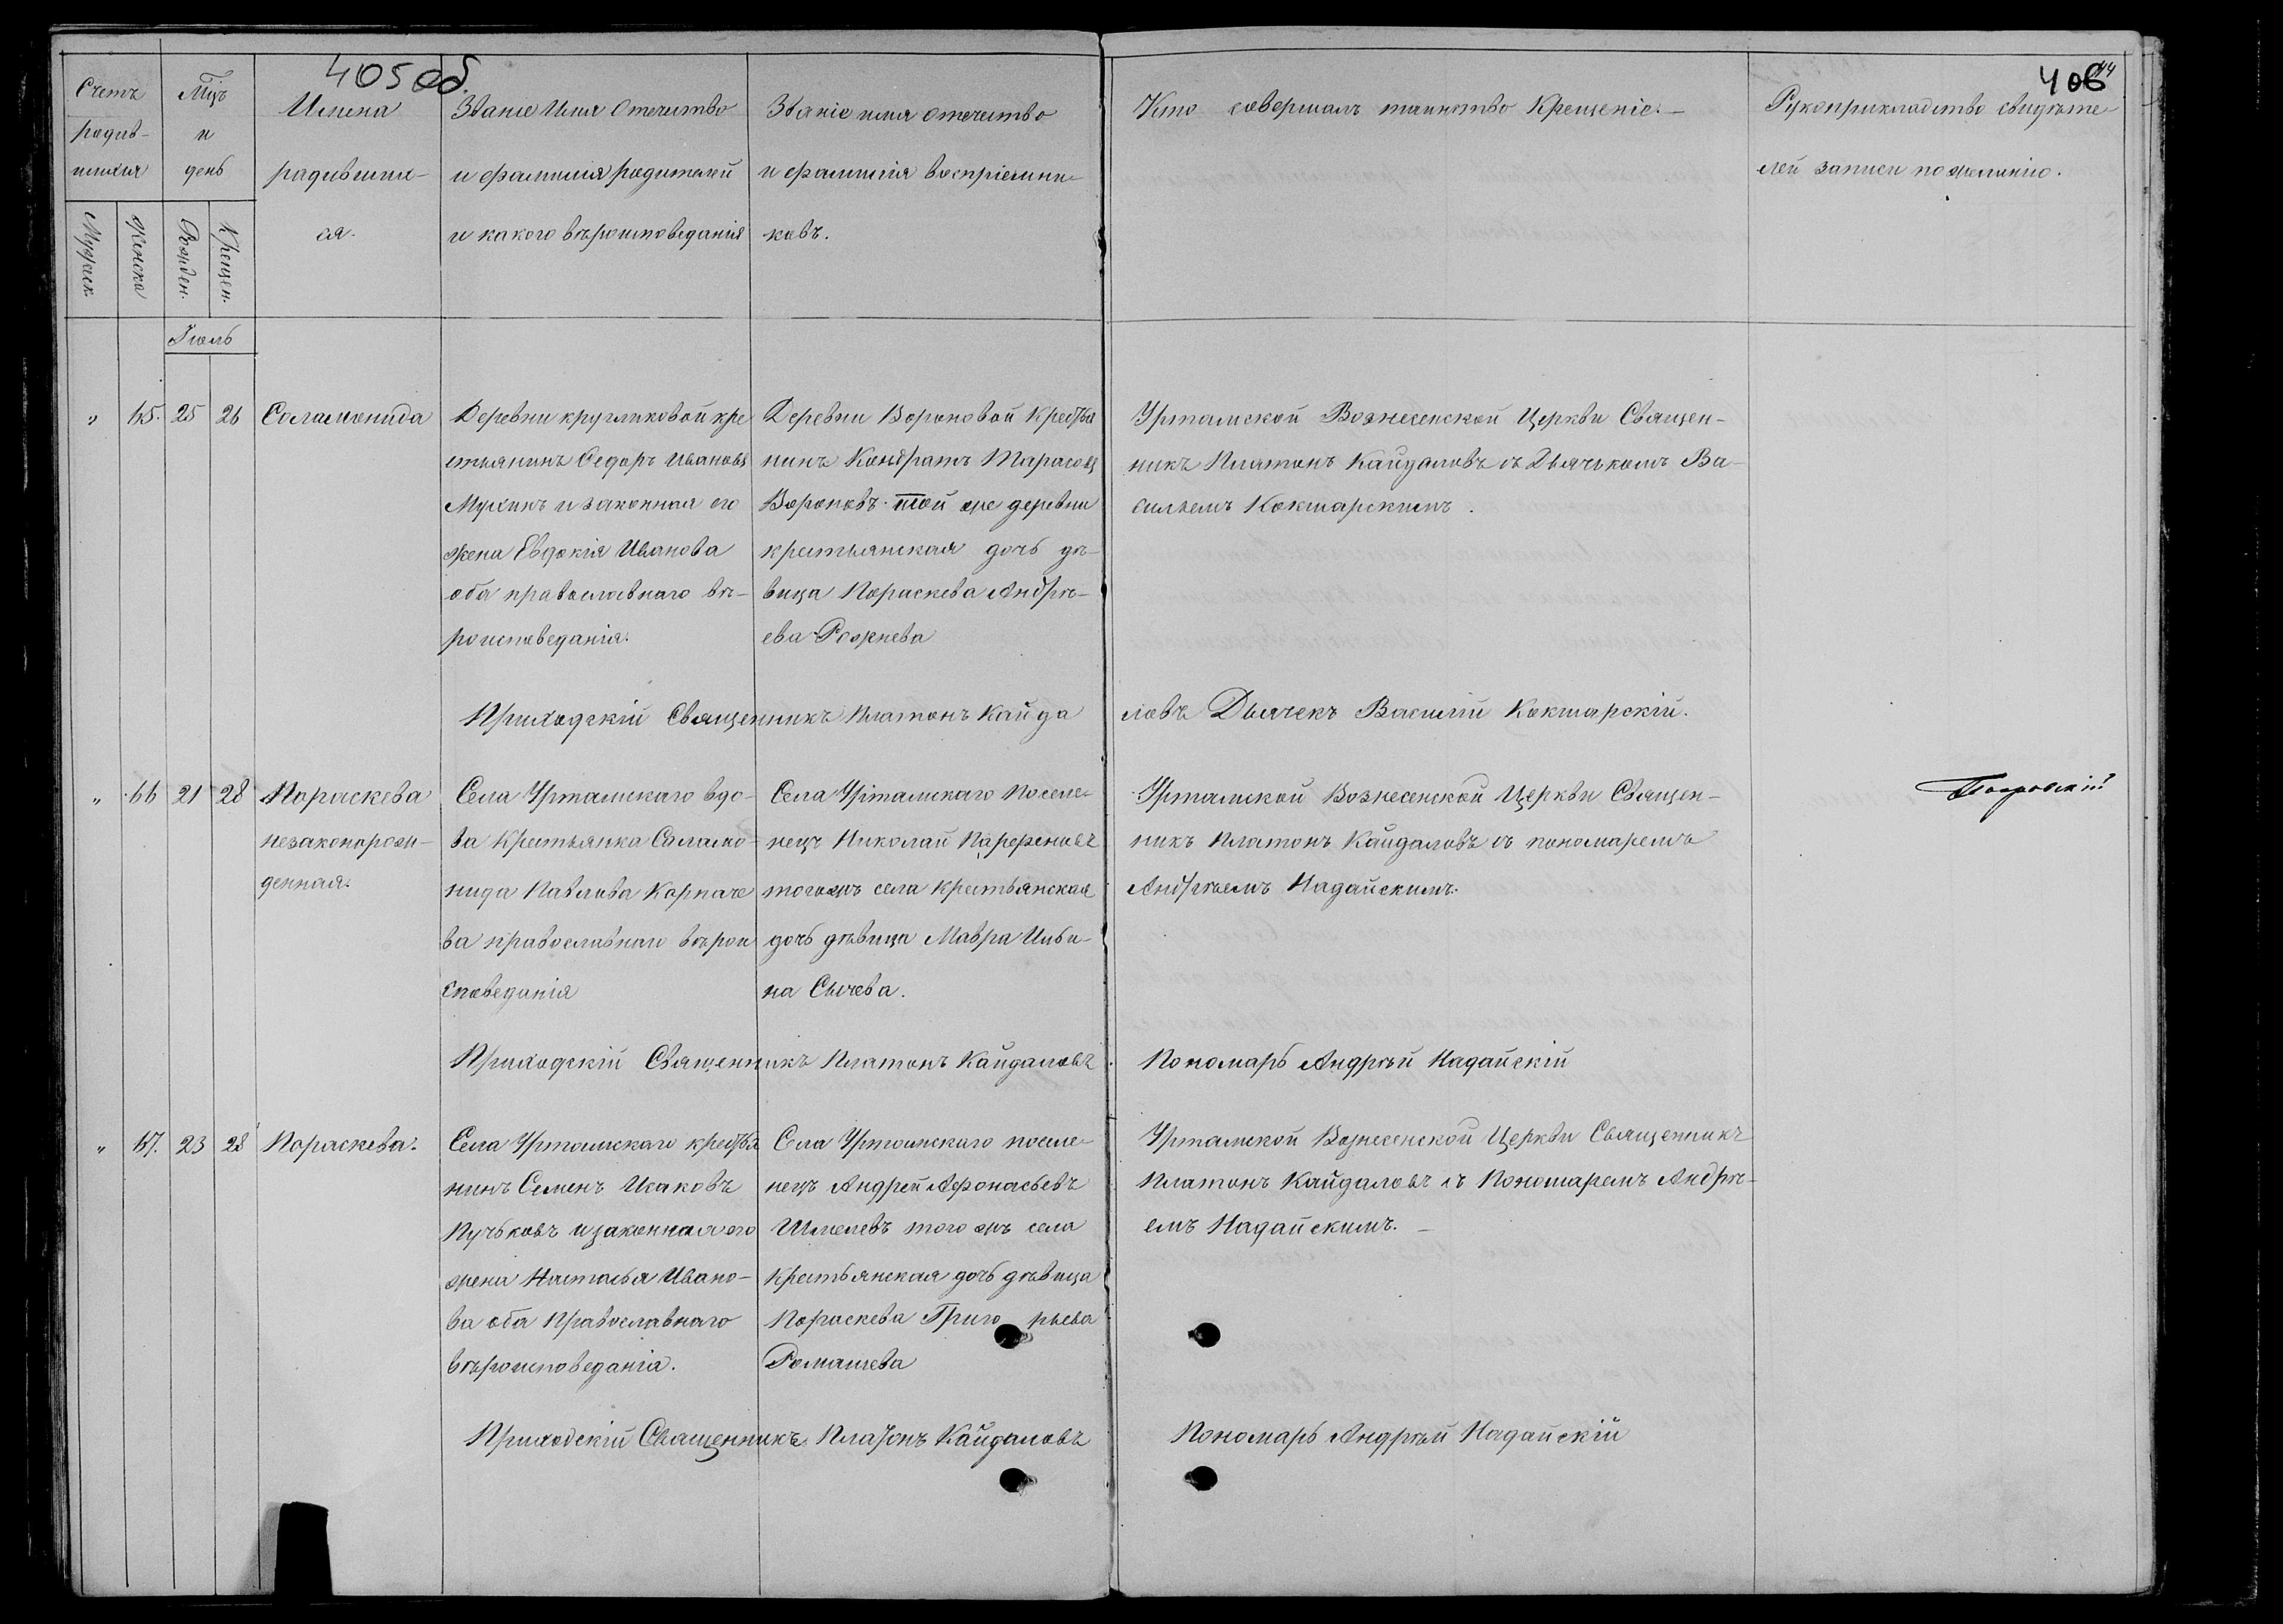 405 об.
406
44
Счетъ
родив-
шихся
Мцъ
и
день
Имена
родивших-
ся.
Званіе Имя Отечество
и фамилія родителей
и какого вѣроисповеданія
Званіе имя отечество
и фамилія воспріемни-
ковъ.
Кто совершалъ таинство Крещеніе. —
Рукоприкладство свидѣте
лей записи по желанію.
Мужеск.
Женска
Рожден.
Крещен.
Іюль
" 65. 25 26 Саламонида
Деревни кругликовой кре
стьянинъ Федоръ Ивановъ
Мухинъ и законная его
жена Евдокія Иванова
оба православнаго вѣ-
роисповеданія.
Деревни Вороновой Крестья
нинъ Кондратъ Тарасовъ
Вороновъ той же деревни
крестьянская дочь дѣ-
вица Пораскева Андрѣ-
ева Рожнева
Уртамской Вознесенской Церкви Священ-
никъ Платонъ Кайдаловъ съ Дьячькомъ Ва-
сильемъ Кокшарскимъ.
Приходскій Священникъ Платонъ Кайда
ловъ Дьячекъ Василій Кокшарскій.
" 66 21 28 Пораскева
незаконорож-
денная.
Села Уртамскаго вдо-
ва Крестьянка Саламо-
нида Павлова Карпаче
ва православнаго вѣрои
споведанія
Села Уртамскаго Поселе-
нецъ Николай Парфеновъ
тогожъ села крестьянская
дочь дѣвица Мавра
на Сычева.
Уртамской Вознесенской Церкви Священ-
никъ Платонъ Кайдаловъ съ пономаремъ
Андрѣемъ Надайскимъ.
Покровскій
Приходскій Священникъ Платонъ Кайдаловъ
Пономарь Андрѣй Надайскій
" 67. 23 28 Пораскева.
Села Уртамскаго крестья
нинъ Семенъ Исаковъ
Пучьковъ и законная его
жена Настасья Ивано-
ва оба Православнаго
вѣроисповеданія.
Села Уртамскаго поселе-
нецъ Андрей Афонасьевъ
Шмелевъ того жъ села
Крестьянская дочь дѣвица
Пораскева Григо рьева
Ромашева
Уртамской Вознесенской Церкви Священникъ
Платонъ Кайдаловъ съ Пономаремъ Андрѣ-
емъ Надайскимъ. —
Приходскій Священникъ Платонъ Кайдаловъ
Пономарь Андрѣй Надайскій